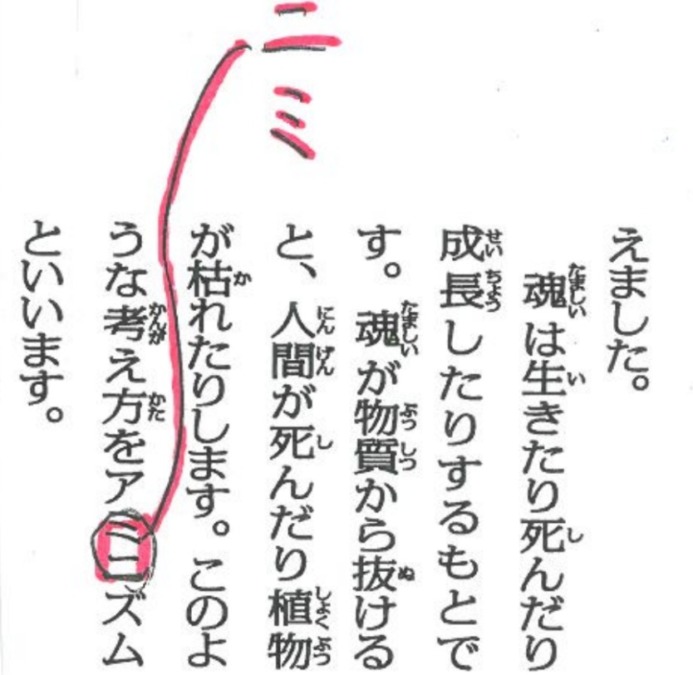 えました。
魂は生きたり死んだり
成長したりするもとで
す。魂が物質から抜ける
と、人間が死んだり植物
が枯れたりします。このよ
うな考え方をアミニズム
といいます。
ニミ